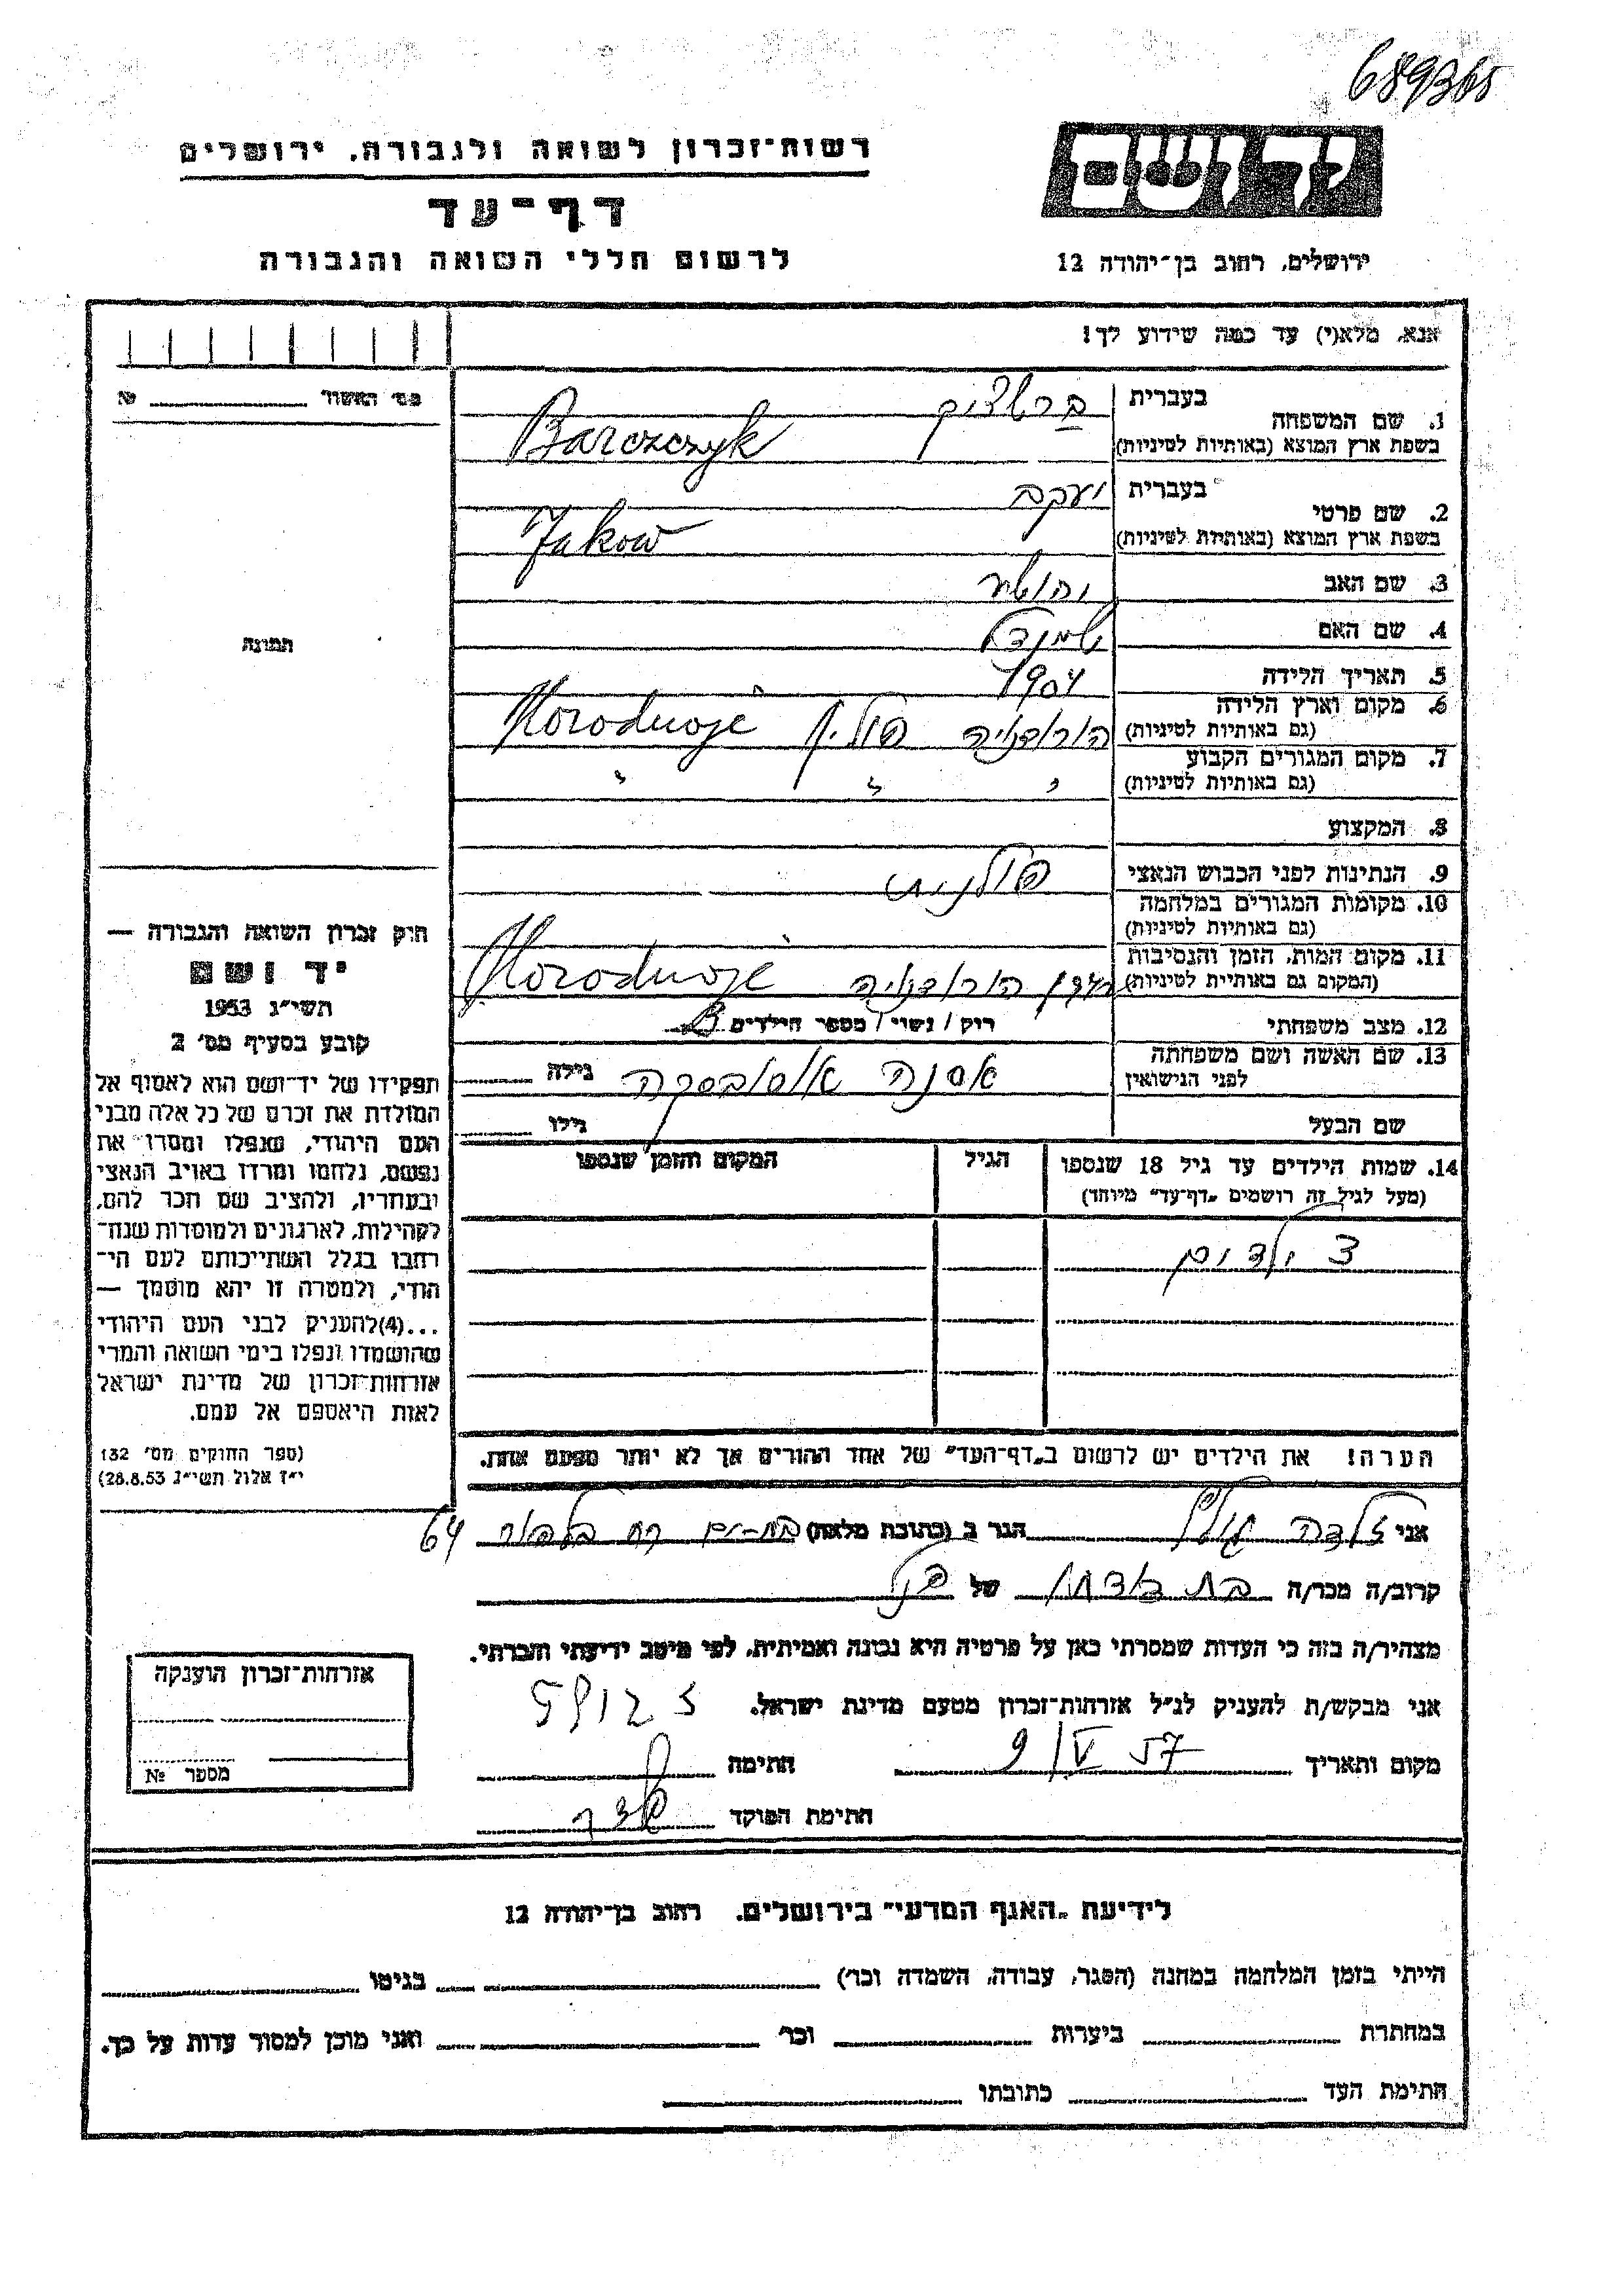 689365
רשות־זכרון לשואה ולגבורה, ירושלים
דף־עד
לרשום חללי השואה והגבורה
יד ושם
ירושלים, רחוב בן־יהודה 12
אנא, מלא(י) עד כמה שידוע לך!
מס׳ האשור № 
1. שם המשפחה
בעברית
בשפת ארץ המוצא (באותיות לטיניות)
Barczczyk
2. שם פרטי
בעברית יעקב
בשפת ארץ המוצא (באותיות לטיניות)
Jakow
3. שם האב
4. שם האם
5. תאריך הלידה 1904
6. מקום וארץ הלידה
(גם באותיות לטיניות)
הורודניה פולין Horodnoje
7. מקום המגורים הקבוע
(גם באותיות לטיניות)
" " "
8. המקצוע
9. הנתינות לפני הכבוש הנאצי פולנית
10. מקומות המגורים במלחמה
(גם באותיות לטיניות)
11. מקום המות, הזמן והנסיבות
(המקום גם באותיות לטיניות)
הורודניה Horodnoje
12. מצב משפחתי רווק / נשוי / מספר הילדים 3
13. שם האשה ושם משפחתה
לפני הנישואין
גילה
שם הבעל גילו
14. שמות הילדים עד גיל 18 שנספו
(מעל לגיל זה רושמים „דף־עד״ מיוחד)
הגיל
המקום והזמן שנספו
3 ילדים
הערה! את הילדים יש לרשום ב„דף־העד״ של אחד ההורים אך לא יותר מפעם אחת.
תמונה
חוק זכרון השואה והגבורה —
יד ושם
תשי״ג 1953
קובע בסעיף מס׳ 2
תפקידו של יד־ושם הוא לאסוף אל
המולדת את זכרם של כל אלה מבני
העם היהודי, שנפלו ומסרו את
נפשם, נלחמו ומרדו באויב הנאצי
ובעוזריו, ולהציב שם וזכר להם,
לקהילות, לארגונים ולמוסדות שנח־
רבו בגלל השתייכותם לעם הי־
הודי, ולמטרה זו יהא מוסמך —
...(4)להעניק לבני העם היהודי
שהושמדו ונפלו בימי השואה והמרי
אזרחות־זכרון של מדינת ישראל
לאות היאספם אל עמם.
(ספר החוקים מס׳ 132
י״ז אלול תשי״ג 28.8.53)
אני זלדה הגר ב (כתובת מלאה) בת-ים רח בלפור 64
קרוב/ה מכר/ה בת דודתו של
מצהיר/ה בזה כי העדות שמסרתי כאן על פרטיה היא נכונה ואמיתית, לפי מיטב ידיעתי והכרתי.
אני מבקש/ת להעניק לנ״ל אזרחות־זכרון מטעם מדינת ישראל.
מקום ותאריך 9/V 57 חתימה
חתימת הפוקד
אזרחות־זכרון הוענקה
מספר №
לידיעת „האגף המדעי״ בירושלים, רחוב בן־יהודה 12
הייתי בזמן המלחמה במחנה (הסגר, עבודה, השמדה וכו׳) בגיטו
במחתרת ביערות וכו׳ ואני מוכן למסור עדות על כך.
חתימת העד כתובתו